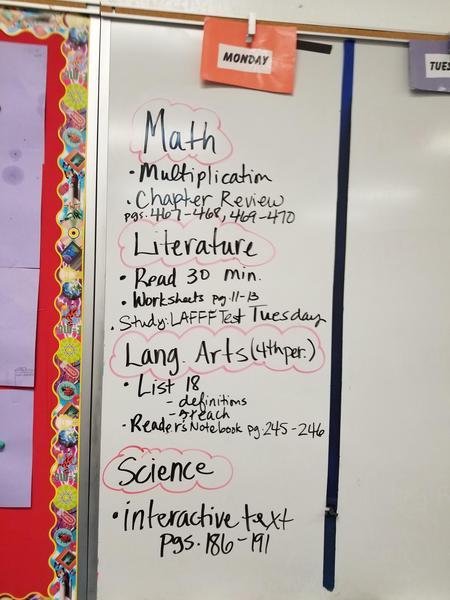 MONDAY
TUES
Math
• Multiplication
• Chapter Review
pgs. 467-468, 469-470
Literature
• Read 30 min.
• Worksheets pg. 11-13
• Study: LAFFF Test Tuesday
Lang. Arts (4th per.)
• List 18
- definitions
- 9r each
• Reader's Notebook pg. 245-246
Science
• interactive text
pgs. 186-191